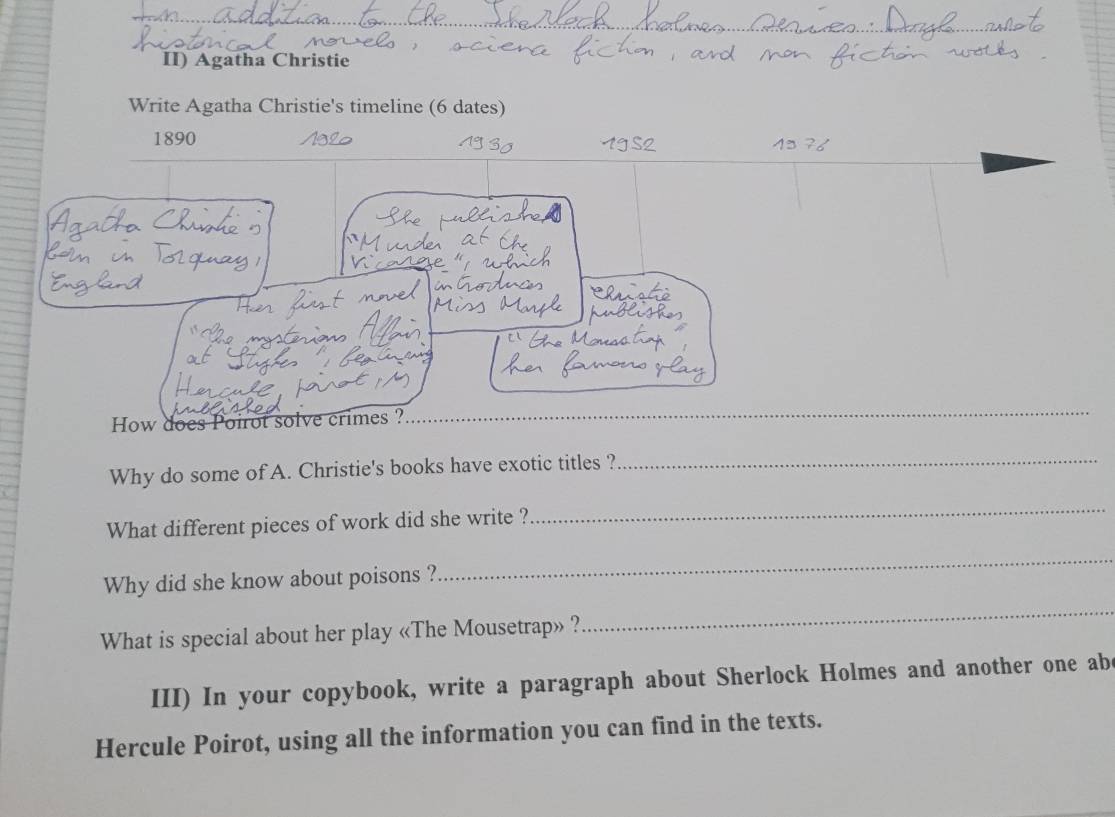 In addition to the Sherlock holmes series. Doyle wrote
historical novels, science fiction, and non fiction works.
II) Agatha Christie
Write Agatha Christie's timeline (6 dates)
1890 1920 1930 1952 1976
Agatha Christie is
born in Torquay,
England
She published
"Murder at the
vicarage", which
introduces
Miss Marple
Her first novel
"the mysterious Affair
at Styles", featuring
Hercule poirot, is
published.
christie
publishes
"the Mousetrap",
her famous play
How does Poirot solve crimes ?
Why do some of A. Christie's books have exotic titles ?
What different pieces of work did she write ?
Why did she know about poisons ?
What is special about her play «The Mousetrap» ?
III) In your copybook, write a paragraph about Sherlock Holmes and another one ab
Hercule Poirot, using all the information you can find in the texts.